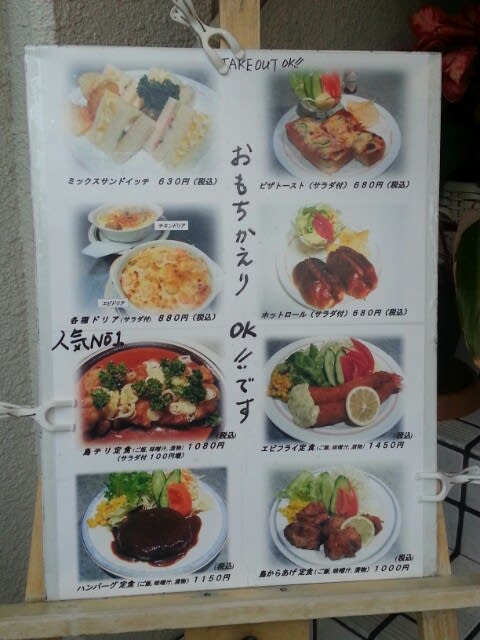 TAKEOUT OK!!
おもちかえり OK!!です
ミックスサンドイッチ 630円(税込)
ピザトースト(サラダ付)680円(税込)
チキンドリア
エビドリア
各種ドリア(サラダ付)880円(税込)
ホットロール(サラダ付)680円(税込)
人気No1
鳥チリ定食(ご飯,味噌汁,漬物)1080円(税込)
(サラダ付100円増)
エビフライ定食(ご飯,味噌汁,漬物)1450円(税込)
ハンバーグ定食(ご飯,味噌汁,漬物)1150円(税込)
鳥からあげ定食(ご飯,味噌汁,漬物)1000円(税込)